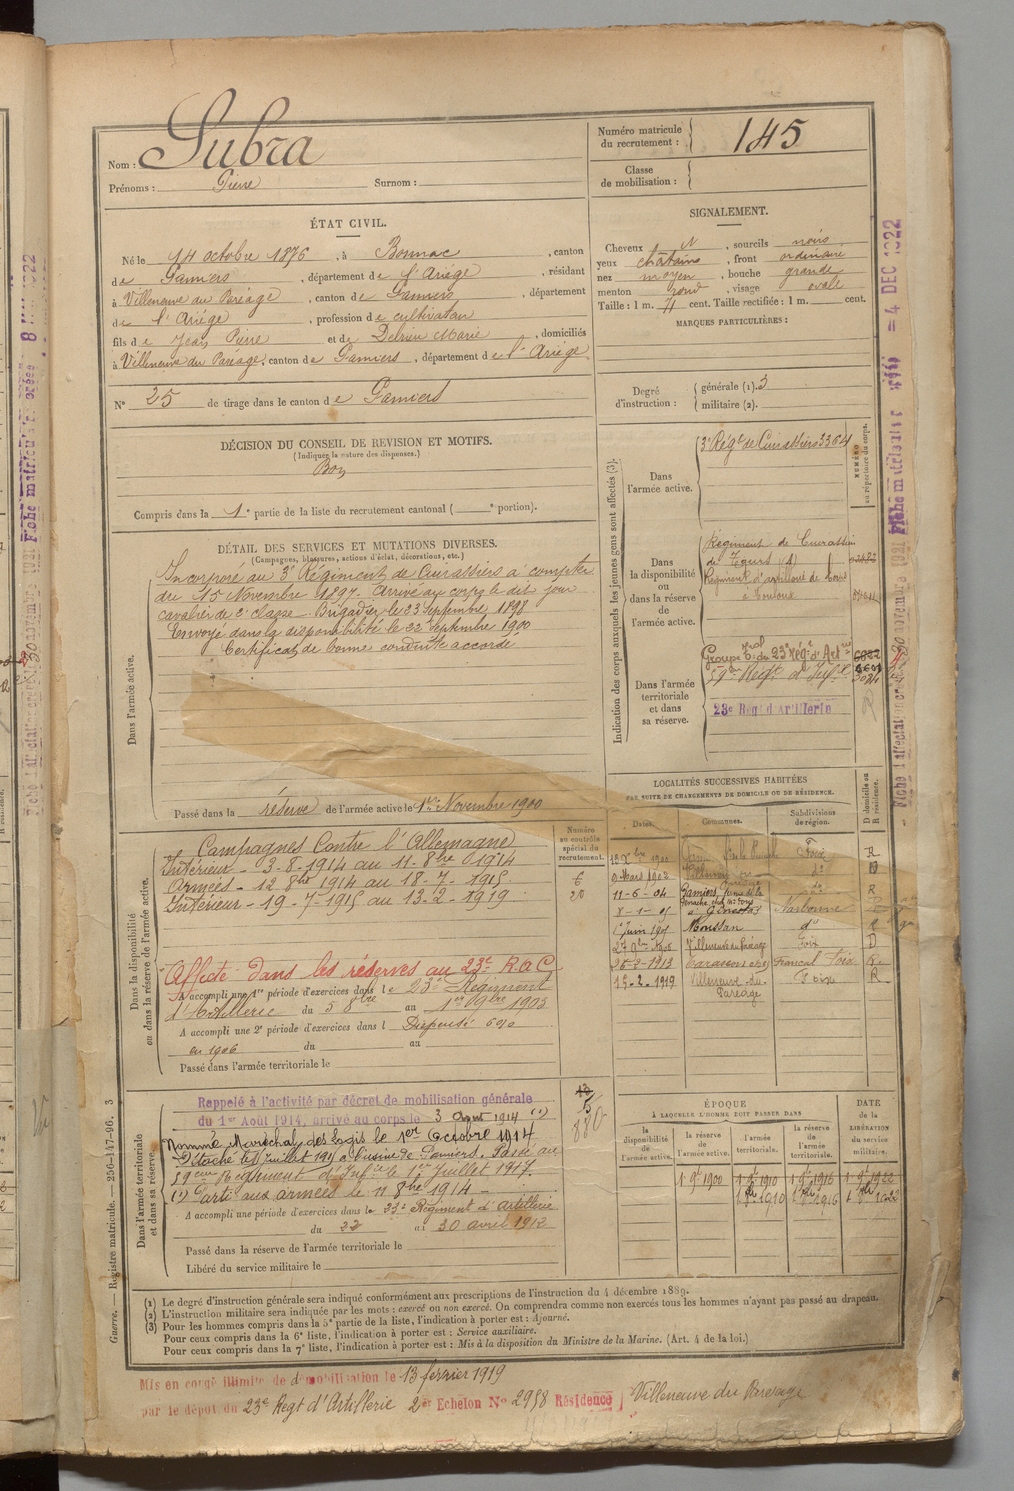 Nom : Subra
Prénoms : Pierre Surnom :
Numéro matricule du recrutement : 145
Classe de mobilisation :
ÉTAT CIVIL.
Né le 14 octobre 1876, à Bonnac, canton
de Pamiers, département de l'Ariège, résidant
à Villeneuve du Paréage, canton de Pamiers, département
de l'Ariège, profession de cultivateur
fils de Jean Pierre et de Delrieu Marie, domiciliés
à Villeneuve du Paréage, canton de Pamiers, département de l'Ariège
N° 25 de tirage dans le canton de Pamiers
SIGNALEMENT.
Cheveux N, sourcils noirs
yeux chatains, front ordinaire
nez moyen, bouche grande
menton rond, visage ovale
Taille : 1 m. 71 cent. Taille rectifiée : 1 m. cent.
MARQUES PARTICULIÈRES :
Degré d'instruction : générale (1). 3
militaire (2).
DÉCISION DU CONSEIL DE REVISION ET MOTIFS.
(Indiquer la nature des dispenses.)
Bon
Compris dans la 1e partie de la liste du recrutement cantonal ( e portion).
DÉTAIL DES SERVICES ET MUTATIONS DIVERSES.
(Campagnes, blessures, actions d'éclat, décorations, etc.)
Dans l'armée active.
Incorporé au 3e Régiment de Cuirassiers à compter
du 15 Novembre 1897. Arrivé au corps le dit jour
cavalier de 2e classe. Brigadier le 23 Septembre 1898
Envoyé dans la disponibilité le 22 Septembre 1900
Certificat de bonne conduite accordé
Passé dans la réserve de l'armée active le 1er Novembre 1900
Indication des corps auxquels les jeunes gens sont affectés (3).
NUMÉRO au répertoire du corps.
Dans l'armée active.
3e Régt de Cuirassiers 3364
Dans la disponibilité ou dans la réserve de l'armée active.
Régiment de Cuirassiers
de Tours (4)
Régiment d'artillerie de
à Toulouse
Dans l'armée territoriale et dans sa réserve.
Groupe du 23e Régt d'Artie
59e Regt d'Infie
23e Regt d'Artillerie
Dans la disponibilité ou dans la réserve de l'armée active.
Campagnes Contre l'Allemagne
Intérieur - 3-8-1914 au 11-8bre 1914
Armées - 12 8bre 1914 au 18-7-1915
Intérieur - 19-7-1915 au 13-2-1919
Affecté dans les réserves au 23e R.A.C
A accompli une 1re période d'exercices dans le 23e Régiment
d'Artillerie du 5 8bre au 1er 9bre 1903
A accompli une 2e période d'exercices dans l Dispensé
en 1906 du au
Passé dans l'armée territoriale le
Numéro au contrôle spécial du recrutement.
LOCALITÉS SUCCESSIVES HABITÉES
PAR SUITE DE CHANGEMENTS DE DOMICILE OU DE RÉSIDENCE.
Dates. Communes. Subdivisions de région. D domicile ou R résidence.
Foix R
9 Mars 1902 do D
11-6-04 Pamiers do R
8-1-05 à Ginestas Narbonne
1 juin 1905 Moussan do
Villeneuve du Paréage Foix D
26-2-1913 Foix R
15-2-1919 Villeneuve-du-Paréage Foix R
Dans l'armée territoriale et dans sa réserve.
Rappelé à l'activité par décret de mobilisation générale
du 1er Août 1914, arrivé au corps le 3 Août 1914 (1)
Nommé Maréchal des Logis le 1er Octobre 1914
Détaché le juillet 1915 à l'usine de Pamiers. Passé au
59ème Régiment d'Infie le 1er Juillet 1917.
(1) Parti aux armées le 11 8bre 1914
A accompli une période d'exercices dans le 23e Régiment d'Artillerie
du 22 au 30 avril 1912
Passé dans la réserve de l'armée territoriale le
Libéré du service militaire le
ÉPOQUE
À LAQUELLE L'HOMME DOIT PASSER DANS
DATE de la LIBÉRATION du service militaire.
la disponibilité de l'armée active. la réserve de l'armée active. l'armée territoriale. la réserve de l'armée territoriale.
1 9bre 1900 1 9bre 1910 1 9bre 1916 1 9bre 1922
(1) Le degré d'instruction générale sera indiqué conformément aux prescriptions de l'instruction du 4 décembre 1889.
(2) L'instruction militaire sera indiquée par les mots : exercé ou non exercé. On comprendra comme non exercés tous les hommes n'ayant pas passé au drapeau.
(3) Pour les hommes compris dans la 5e partie de la liste, l'indication à porter est : Ajourné.
Pour ceux compris dans la 6e liste, l'indication à porter est : Service auxiliaire.
Pour ceux compris dans la 7e liste, l'indication à porter est : Mis à la disposition du Ministre de la Marine. (Art. 4 de la loi.)
Mis en congé illimité de démobilisation le 13 février 1919
par le dépôt du 23e Regt d'Artillerie 2er Echelon No 2958 Résidence Villeneuve du Paréage
Guerre. — Registre matricule. — 256-147-96. 3
= 4 DEC 1922